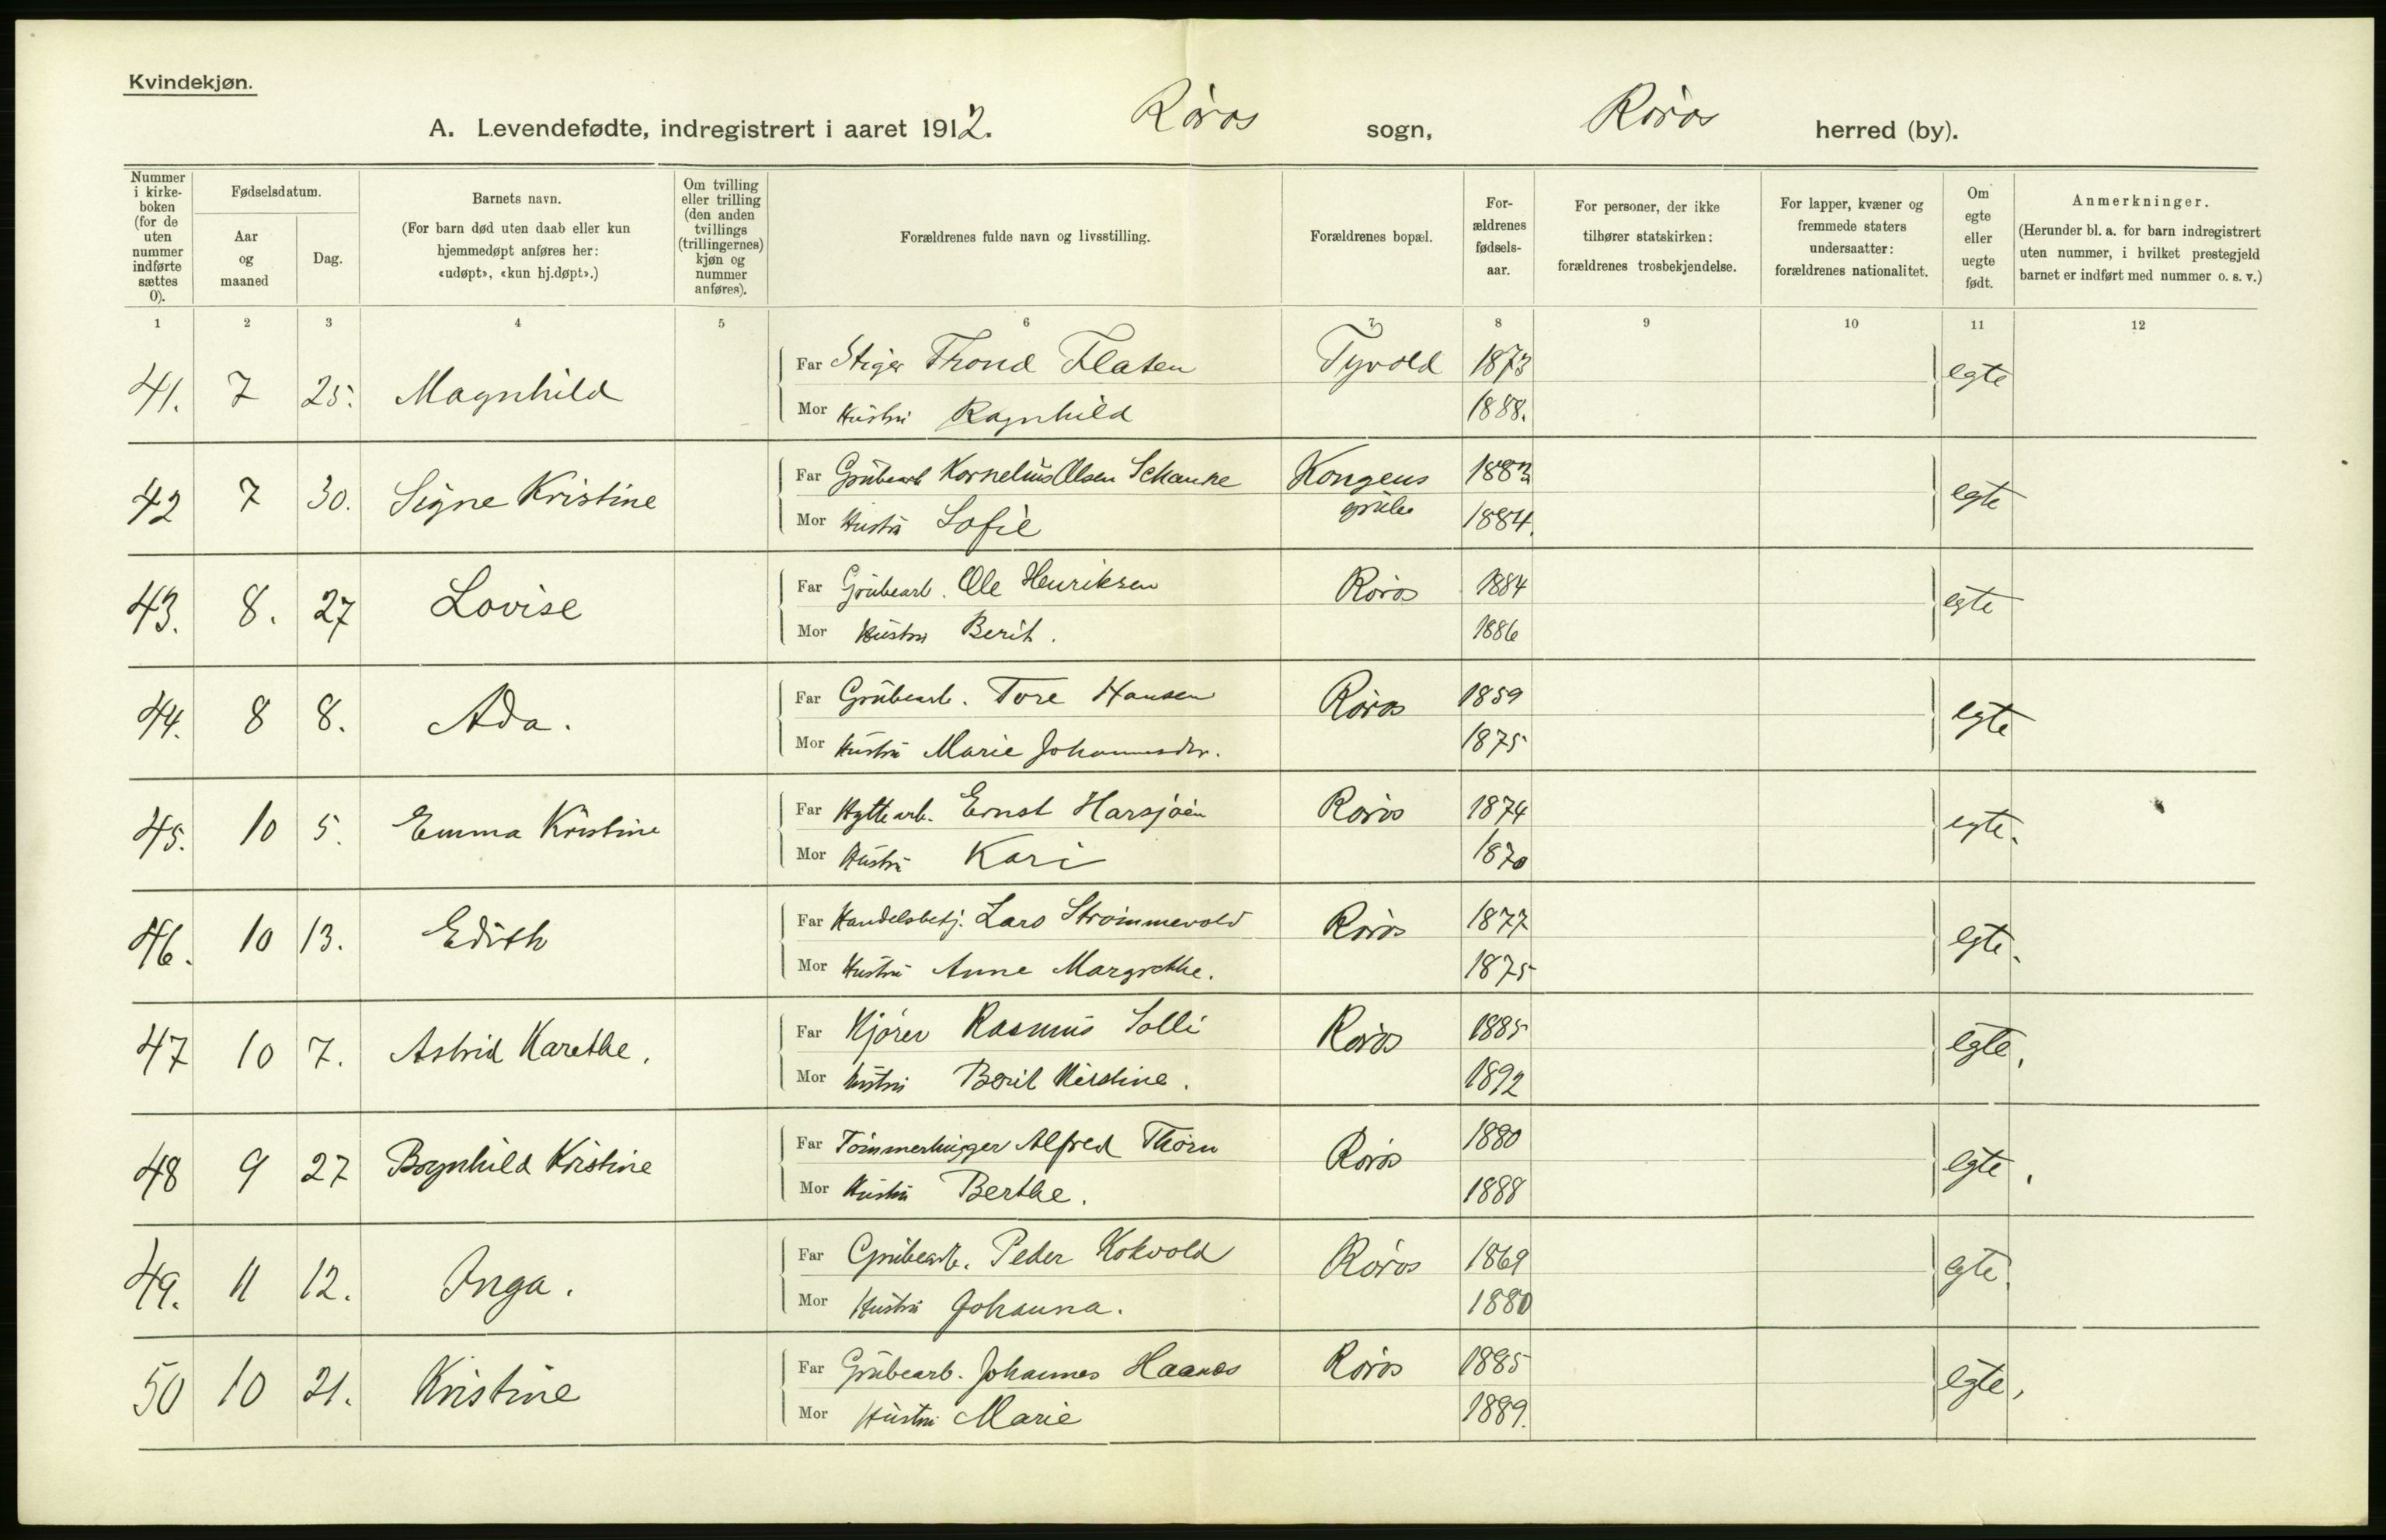 Kvindekjøn.
A. Levendefødte, indregistrert i aaret 1912. Røros sogn, Røros herred (by).
Nummer i kirkeboken (for de uten nummer indførte sættes 0).
Fødselsdatum.
Aar og maaned
Dag.
Barnets navn.
(For barn død uten daab eller kun hjemmedøpt anføres her: «udøpt», «kun hj.døpt».)
Om tvilling eller trilling (den anden tvillings (trillingernes) kjøn og nummer anføres).
Forældrenes fulde navn og livsstilling.
Forældrenes bopæl.
Forældrenes fødselsaar.
For personer, der ikke tilhører statskirken: forældrenes trosbekjendelse.
For lapper, kvæner og fremmede staters undersaatter: forældrenes nationalitet.
Om egte eller uegte født.
Anmerkninger.
(Herunder bl. a. for barn indregistrert uten nummer, i hvilket prestegjeld barnet er indført med nummer o. s. v.)
1 2 3 4 5 6 7 8 9 10 11 12
41. 7 25. Magnhild Far Stiger Trond Flaten Tyvold 1873 egte
Mor Hustru Ragnhild 1888.
42 7 30. Signe Kristine Far Grubearb Kornelius Olsen Schanke Kongens grube 1883 egte
Mor Hustru Sofie 1884.
43. 8. 27 Lovise Far Grubearb. Ole Henriksen Røros 1884 egte
Mor Hustru Berit. 1886
44. 8 8. Ada. Far Grubearb. Tore Hansen Røros 1859 egte
Mor Hustru Marie Johannesdtr. 1875
45. 10 5. Emma Kristine Far Hyttearb. Ernst Harsjøen Røros 1874 egte.
Mor Hustru Kari 1870
46. 10 13. Edith Far Handelsbetj. Lars Strømmevold Røros 1877 egte.
Mor Hustru Anne Margrethe. 1875
47 10 7. Astrid Karethe. Far Kjører Rasmus Solli Røros 1885 egte.
Mor Hustru Berit Kirstine. 1892
48 9 27 Borghild Kristine Far Tømmerhugger Alfred Thorn Røros 1880 egte.
Mor Hustru Berthe. 1888
49. 11 12. Inga. Far Grubearb. Peder Kokvold Røros 1869 egte.
Mor Hustru Johanna. 1880
50 10 21. Kristine Far Grubearb. Johannes Haanes Røros 1885 egte.
Mor Hustru Marie 1889.